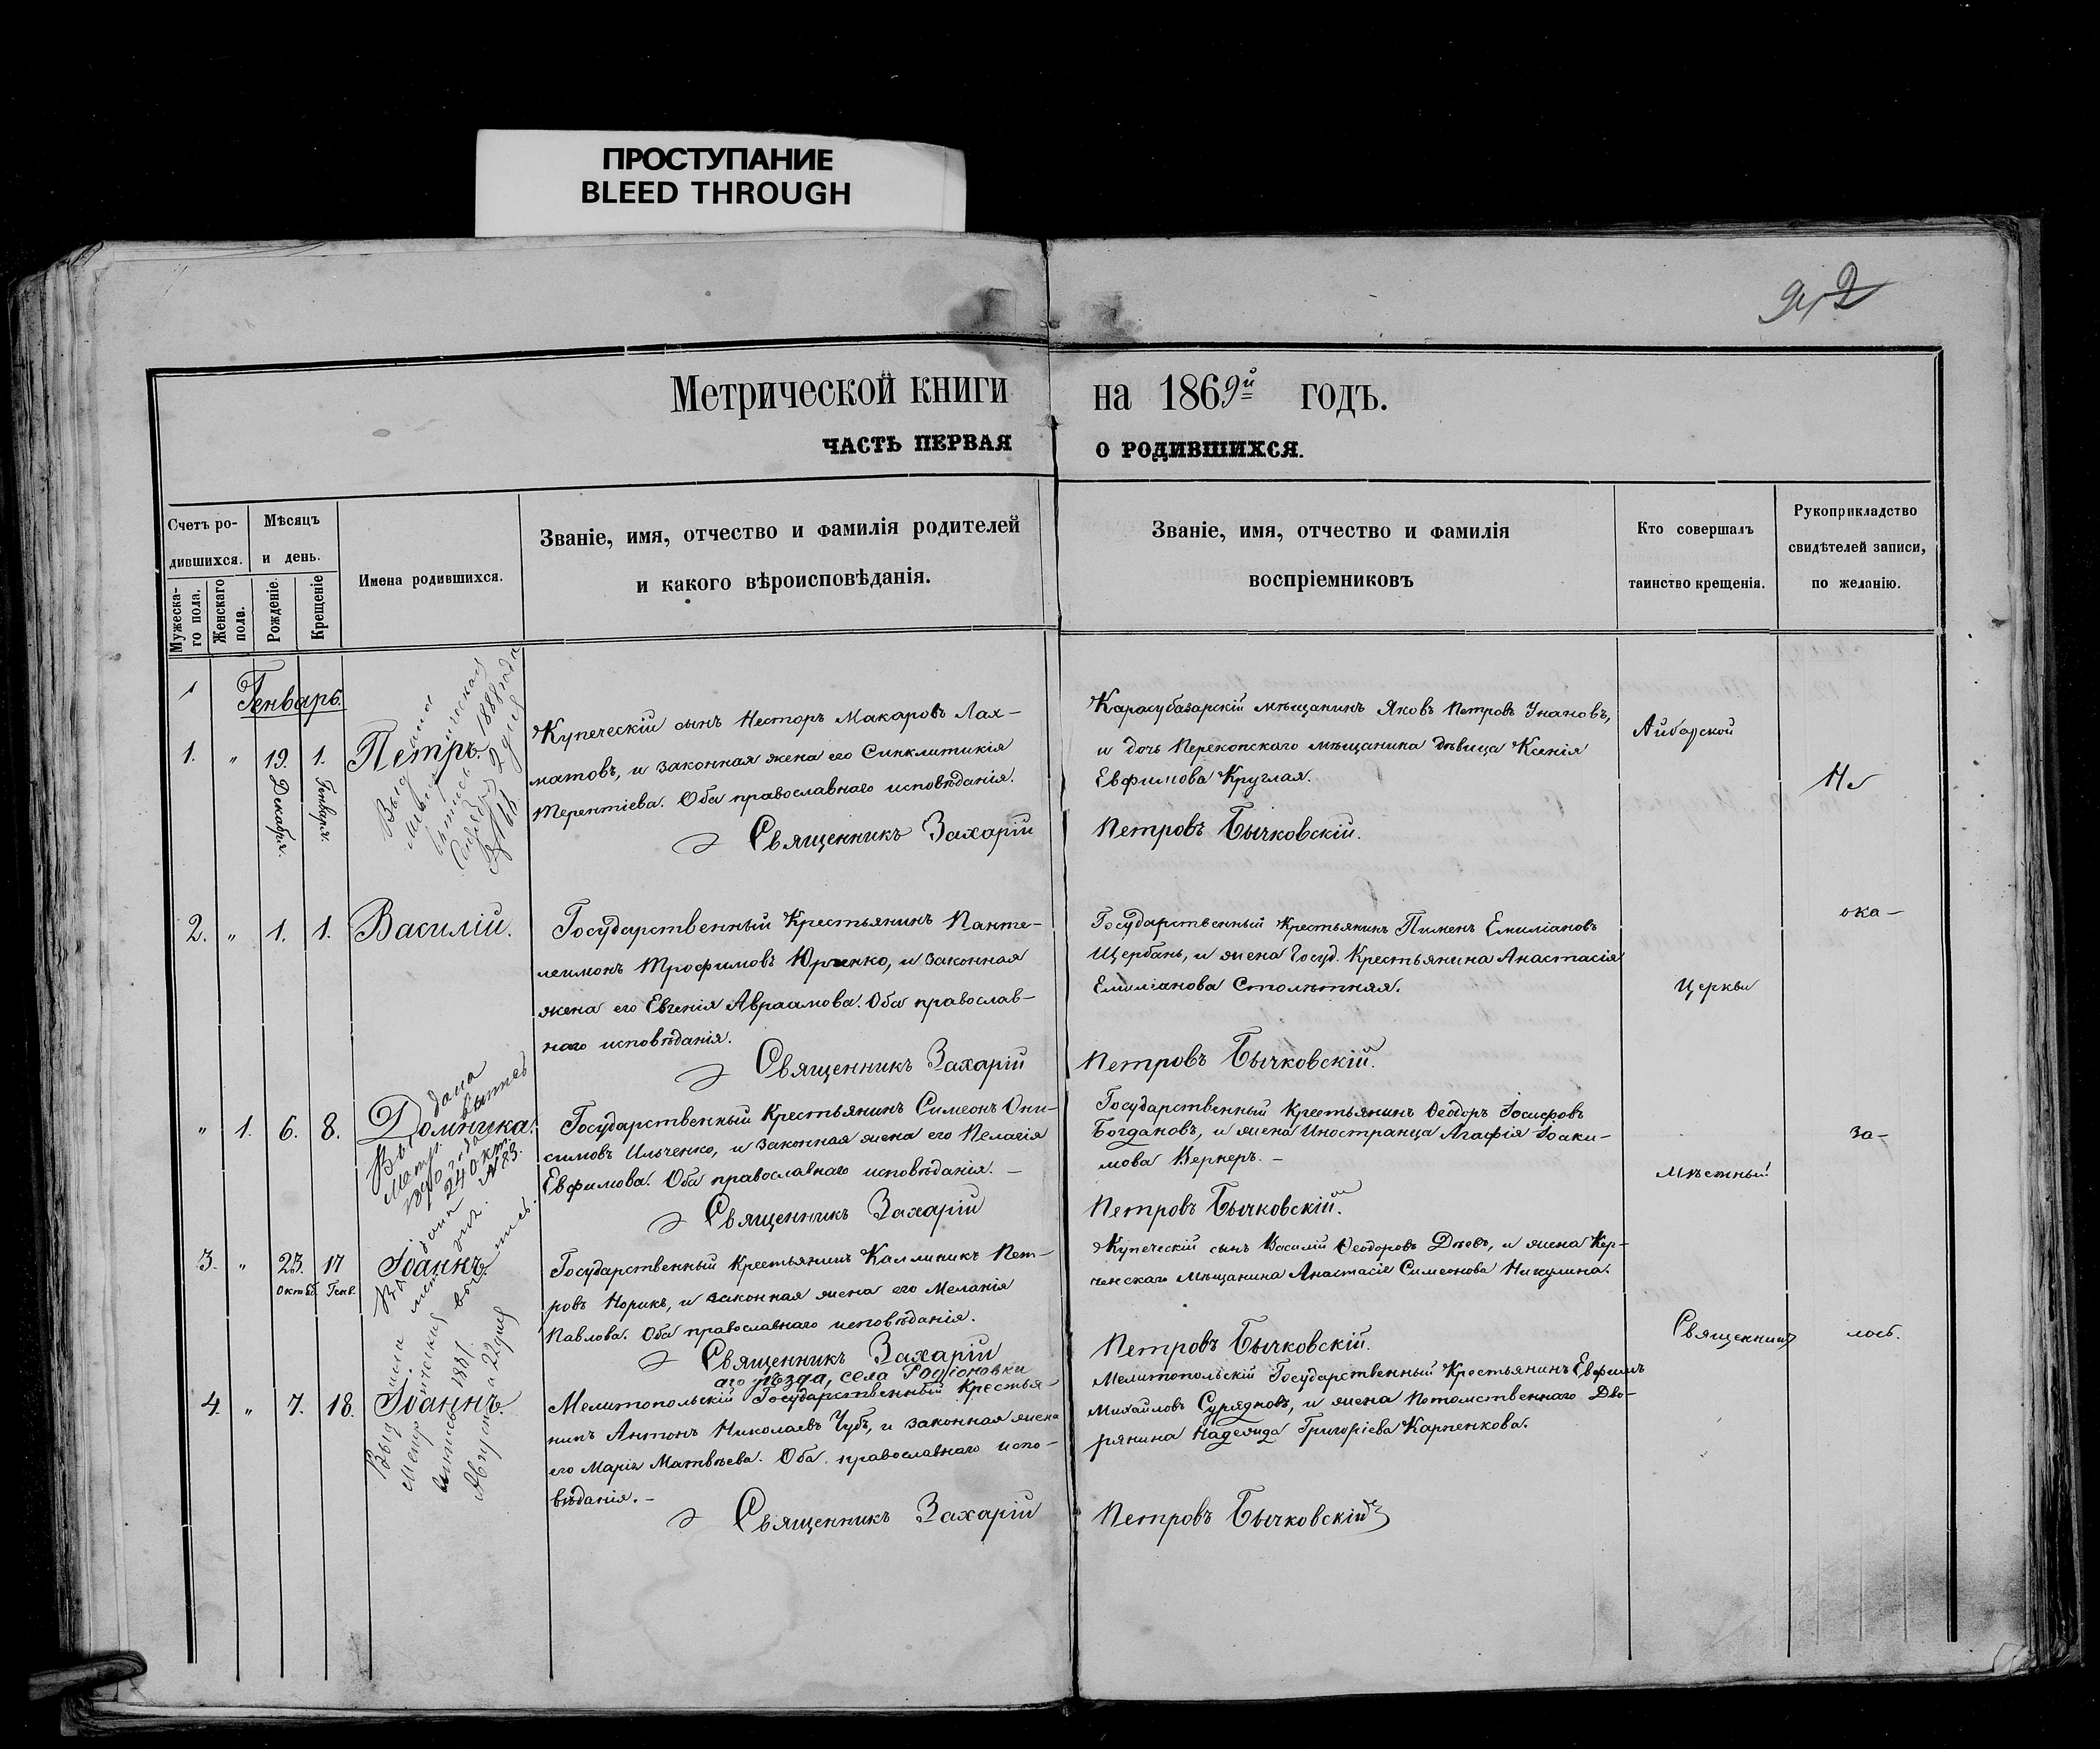 ПРОСТУПАНИЕ
BLEED THROUGH
Метрической книги на 1869й годъ.
ЧАСТЬ ПЕРВАЯ О РОДИВШИХСЯ.
Счетъ ро-
дившихся.
Мужеска-
го пола.
Женскаго
пола.
Мѣсяцъ
и день.
Рожденіе.
Крещеніе
Имена родившихся.
Званіе, имя, отчество и фамилія родителей
и какого вѣроисповѣданія.
Званіе, имя, отчество и фамилія
воспріемниковъ
Кто совершалъ
таинство крещенія.
Рукоприкладство
свидѣтелей записи,
по желанію.
1
Генварь.
1. " 19. Декабря. 1. Генваря. Петръ.
Купеческій сынъ Несторъ Макаровъ Лах-
матовъ, и законная жена его Синклитикія
Терентіева. Оба православнаго исповѣданія.
Священникъ Захарій
Карасубазарскій мѣщанинъ Яковъ Петровъ
и дочь Перекопскаго мѣщанина дѣвица Ксенія
Евфимова Круглая.
Петровъ Бычковскій.
Айбарской
Не
2. " 1. 1. Василій.
Государственный Крестьянинъ Панте-
леимонъ Трофимовъ Юрченко, и законная
жена его Евгенія Авраамова. Оба православ-
наго исповѣданія.
Священникъ Захарій
Государственный Крестьянинъ Пименъ Емиліановъ
Щербань, и жена Госуд. Крестьянина Анастасія
Емиліанова Столѣтняя.
Петровъ Бычковскій.
Церкви
ока-
" 1. 6. 8. Домникia.
Государственный Крестьянинъ Симеонъ Они-
симовъ Ильченко, и законная жена его Пелагія
Евфимова. Оба православнаго исповѣданія. -
Священникъ Захарій
Государственный Крестьянинъ Ѳеодоръ Іосифовъ
Богдановъ, и жена Иностранца Агафія Іоаки-
мова Вернеръ. -
Петровъ Бычковскій.
Мѣстный
за-
3. " 23. Октяб. 17 Генв. Іоаннъ.
Государственный Крестьянинъ Каллиникъ Пет-
ровъ Норикъ, и законная жена его Меланія
Павлова. Оба православнаго исповѣданія.
Священникъ Захарій
Купеческій сынъ Василій Ѳеодоровъ и жена Кер-
ченскаго Мѣщанина Анастасія Симеонова Никулина.
Петровъ Бычковскій.
Священникъ
лось.
4. " 7. 18. Іоаннъ.
аго уѣзда, села Родіоновки
Мелитопольскій Государственный Крестья-
нинъ Антонъ Николаевъ Чубъ, и законная жена
его Марія Матвѣева. Оба православнаго испо-
вѣданія. -
Священникъ Захарій
Мелитопольскій Государственный Крестьянинъ Евфимъ
Михайловъ и жена Потомственнаго Дво-
рянина Надежда Григоріева Карпенкова.
Петровъ Бычковскій